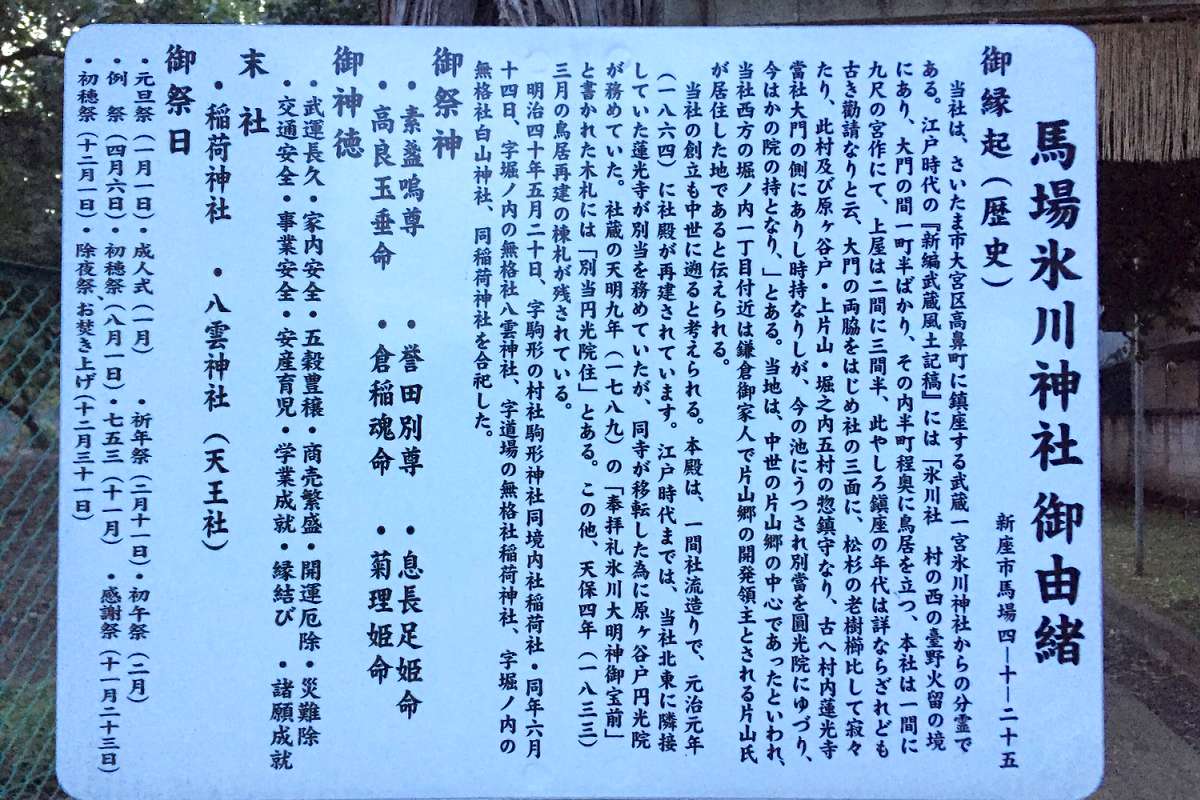 馬場氷川神社 御由緒
新座市馬場四ー十ー二十五
御縁起（歴史）
当社は、さいたま市大宮区高鼻町に鎮座する武蔵一宮氷川神社からの分霊で
ある。江戸時代の『新編武蔵風土記稿』には「氷川社　村の西の臺野火留の境
にあり、大門の間一町半ばかり、その内半町程奥に鳥居を立つ、本社は一間に
九尺の宮作にて、上屋は二間に三間半、此やしろ鎭座の年代は詳ならざれども
古き勸請なりと云、大門の両脇をはじめ社の三面に、松杉の老樹櫛比して寂々
たり、此村及び原ヶ谷戸・上片山・堀之内五村の惣鎮守なり、古へ村内蓮光寺
當社大門の側にありし時持なりしが、今の池にうつされ別當を圓光院にゆづり、
今はかの院の持となり、」とある。当地は、中世の片山郷の中心であったといわれ、
当社西方の堀ノ内一丁目付近は鎌倉御家人で片山郷の開発領主とされる片山氏
が居住した地であると伝えられる。
当社の創立も中世に遡ると考えられる。本殿は、一間社流造りで、元治元年
（一八六四）に社殿が再建されています。江戸時代までは、当社北東に隣接
していた蓮光寺が別当を務めていたが、同寺が移転した為に原ヶ谷戸円光院
が務めていた。社蔵の天明九年（一七八九）の「奉拝礼氷川大明神御宝前」
と書かれた木札には「別当円光院住」とある。この他、天保四年（一八三三）
三月の鳥居再建の棟札が残されている。
明治四十年五月二十日、字駒形の村社駒形神社同境内社稲荷社・同年六月
十四日、字堀ノ内の無格社八雲神社、字道場の無格社稲荷神社、字堀ノ内の
無格社白山神社、同稲荷神社を合祀した。
御祭神
・素盞嗚尊　・誉田別尊　・息長足姫命
・高良玉垂命　・倉稲魂命　・菊理姫命
御神徳
・武運長久・家内安全・五穀豊穣・商売繁盛・開運厄除・災難除
・交通安全・事業安全・安産育児・学業成就・縁結び　・諸願成就
末　社
・稲荷神社　・八雲神社（天王社）
御祭日
・元旦祭（一月一日）・成人式（一月）　・祈年祭（二月十一日）・初午祭（二月）
・例　祭（四月六日）・初穂祭（八月一日）・七五三（十一月）　・感謝祭（十一月二十三日）
・初穂祭（十二月一日）・除夜祭、お焚き上げ（十二月三十一日）